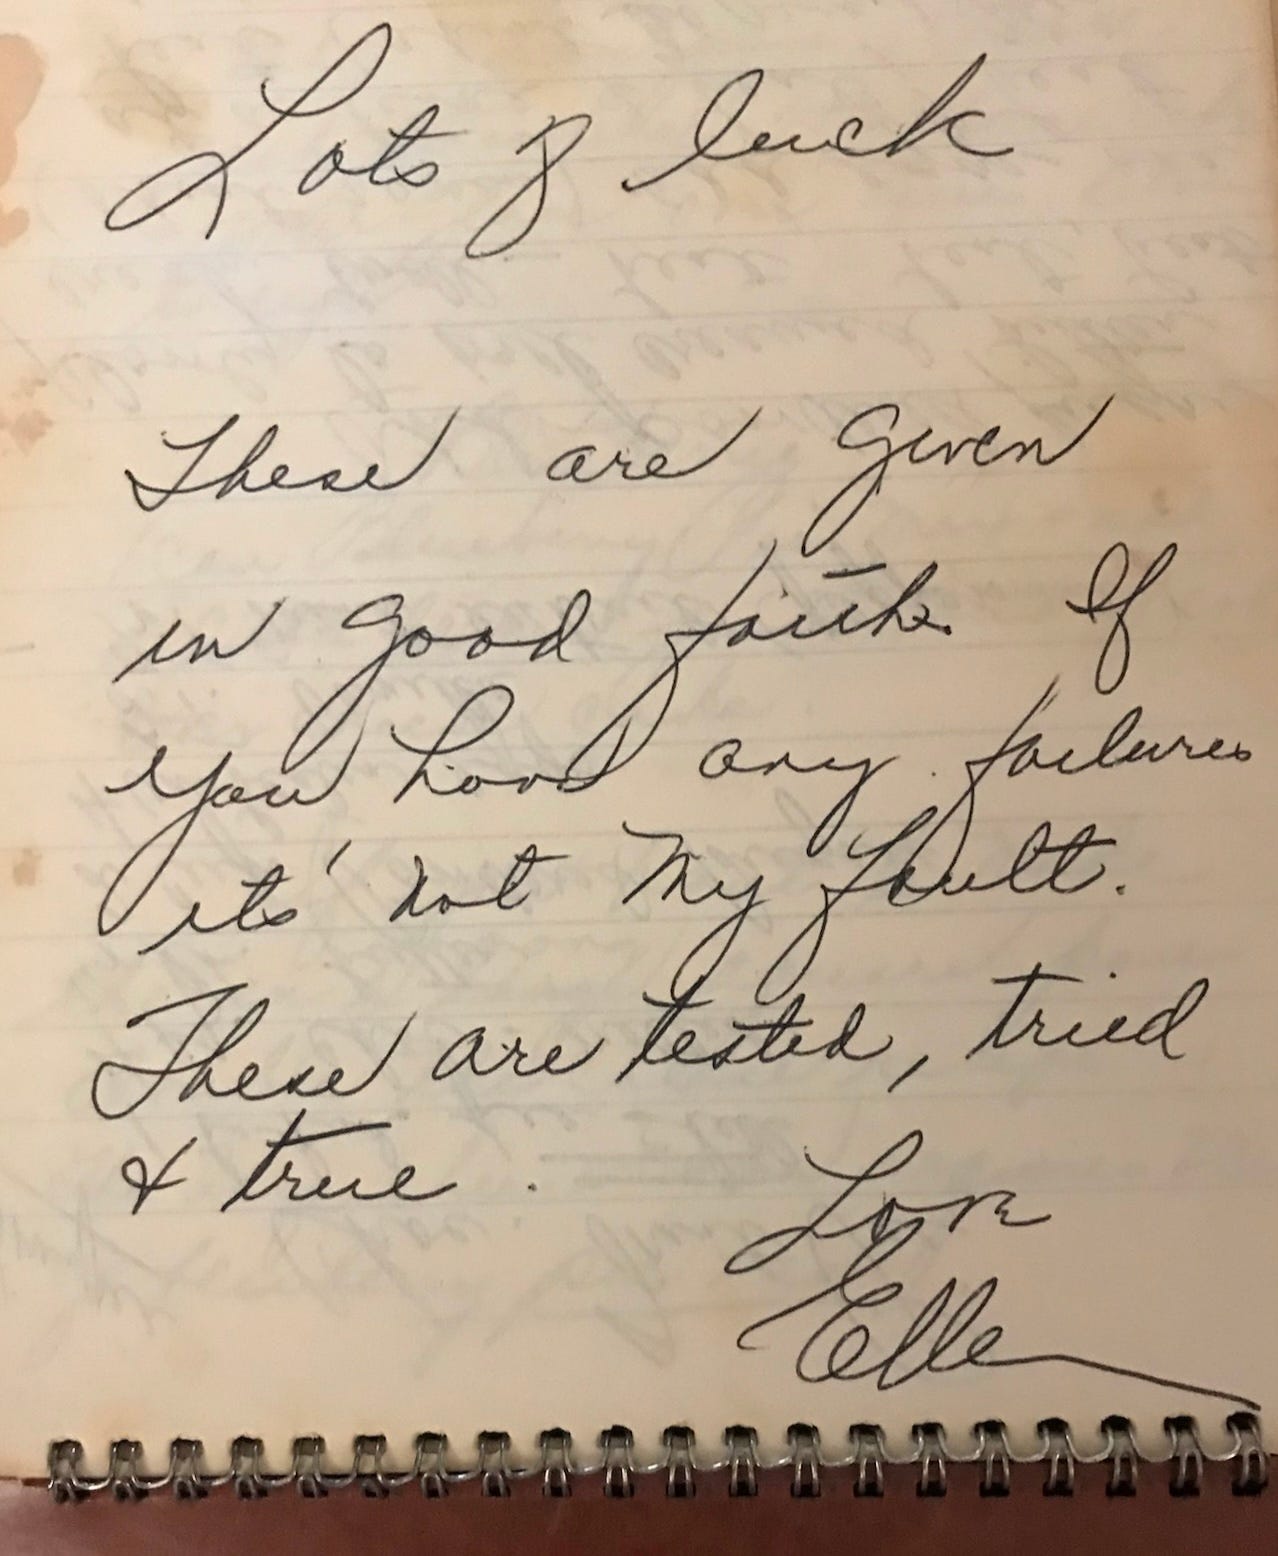 Lots of luck
These are given
in good faith. If
you have any failures
its' not my fault.
These are tested, tried
& true.
Love
Ellen